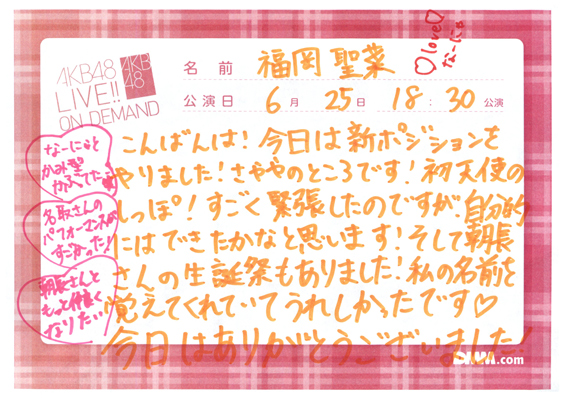 AKB48
LIVE!!
ON DEMAND
AKB
48
名前 福岡 聖菜
♡love♡
なーにゃ
公演日 6月 25日 18:30公演
こんばんは!今日は新ポジションを
やりました!さややのところです!初天使の
しっぽ!すごく緊張したのですが、自分的
にはできたかなと思います!そして朝長
さんの生誕祭もありました!私の名前を
覚えてくれていてうれしかったです♡
今日はありがとうございました!
なーにゃと
かみ型
かぶってた
名取さんの
パフォーマンスが
すごかった!
朝長さんと
もっと仲良く
なりたい
DMM.com